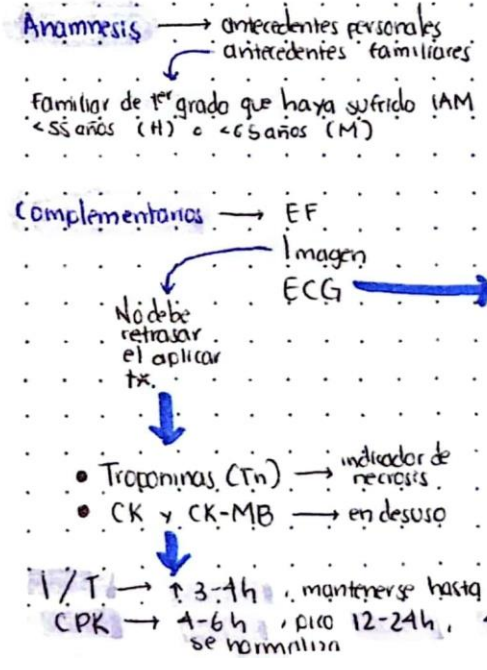 Anamnesis → antecedentes personales
antecedentes familiares
Familiar de 1er grado que haya sufrido IAM
<55 años (H) o <65 años (M)
Complementarios → EF
Imagen
ECG
No debe
retrasar
el aplicar
tx.
• Troponinas (Tn) → indicador de
necrosis.
• CK y CK-MB → en desuso
I/T → ↑ 3-4h , mantenerse hasta
CPK → 4-6h , pico 12-24h,
se normaliza